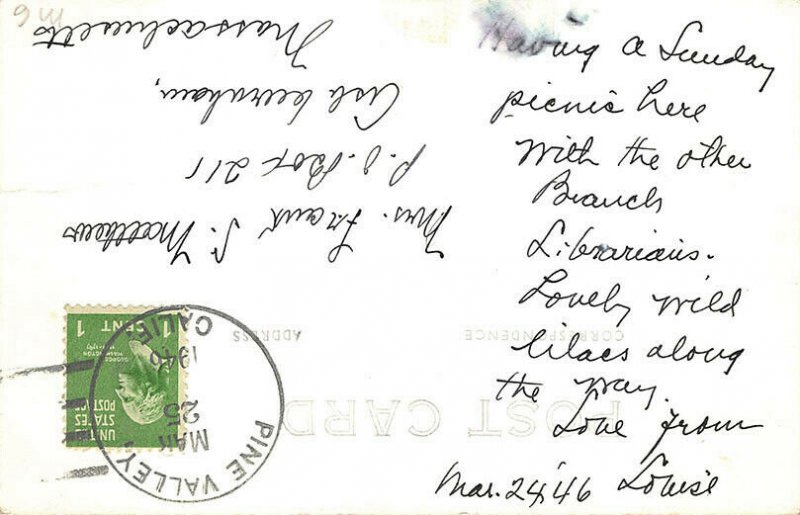 Having a Sunday
picnic here
with the other
Branch
Librarians.
Lovely wild
lilacs along
the way.
Love from
Mar. 24, 46 Louise
Mrs. Frank S. Matthews
P.O. Box 211
Ashburnham,
Massachusetts
POST CARD
CORRESPONDENCE
ADDRESS
PINE VALLEY,
MAR
25
1946
CALIF.
UNITED
STATES
POSTAGE
GEORGE
WASHINGTON
1 CENT 1